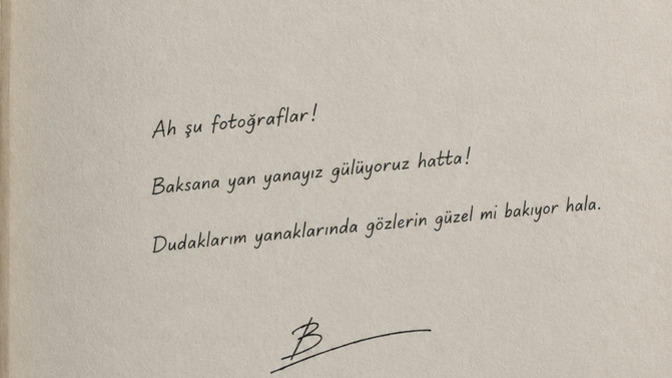 Ah şu fotoğraflar!
Baksana yan yanayız gülüyoruz hatta!
Dudaklarım yanaklarında gözlerin güzel mi bakıyor hala.
B